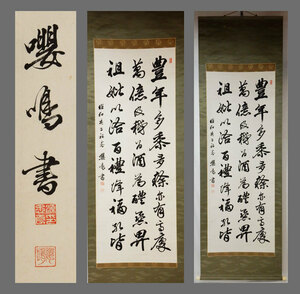 嚶鳴書
豐年多黍多稌亦有高廩
萬億及秭為酒為醴烝畀
祖妣以洽百禮降福孔皆
昭和 嚶鳴書
豐年多黍多稌亦有高廩
萬億及秭為酒為醴烝畀
祖妣以洽百禮降福孔皆
昭和 嚶鳴書